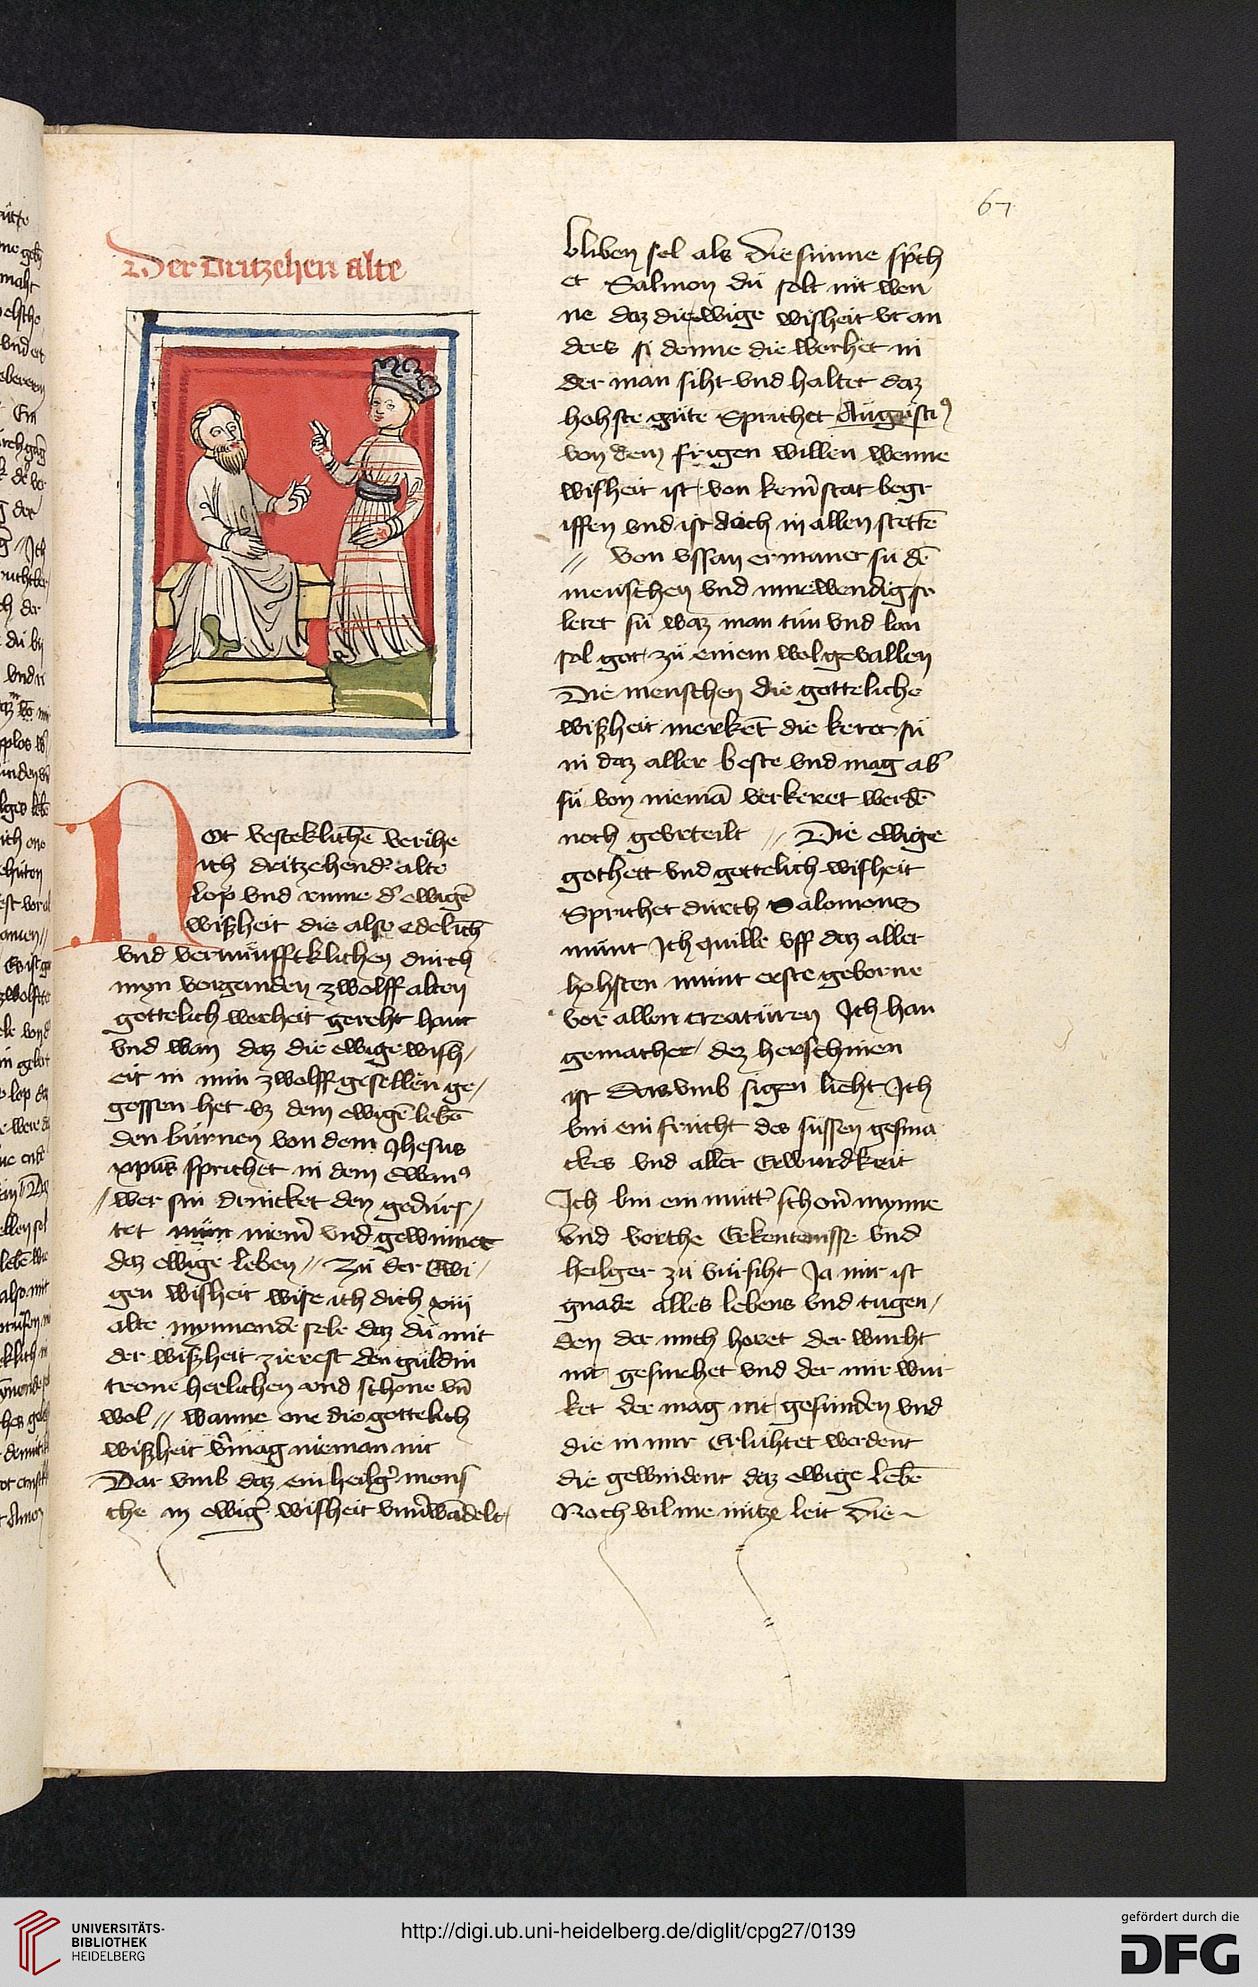 67
Der dritzehen alte
Not vesteklichē verihe
ich dritzehend' alte
lop vnd rume d' ewigē
wißheit die also edelich
vnd vernúnfftklichen durch
myn vorganden zwolff alten
gottelich worheit gereht hant
vnd wan daz die ewige wish/
eit in min zwolff gesellen ge/
gossen het vz dem ewigē lebē
den burnen von dem Jhesus
xpūs sprichet in dem ewan⁹
// wer sin drincket den gedurs/
tet niem̄ vnd gewinnet
daz ewige leben // Zu der Ewi/
gen wisheit wise ich dich xiii
alte mynnende sele daz du mit
der wißheit zierest den guldin
trone herlichen vnd schone vn̄
wol // wanne one die gottelich
wißheit v̄mag nieman nit
Dar vmb daz ein heilg' mens
che in ewig' wisheit vnu'wādelt
bliben sol als die sunne sp̄ch
et Salmon du solt nit wen
ne daz die ewige wisheit vt an
ders si denne die worheit in
der man siht vnd haltet daz
hohste gute Sprichet Augusti⁹
von dem frigen willen wenne
wisheit ist von kein̄ stat begr
iffen vnd ist doch in allen stettē
// von vssan ermanet su dē
menschen vnd innewendig
leret su waz man tun vnd lan
sol got zu einem wolgevallen
Die menschen die gotteliche
wißheit merkēt die keret su
in daz aller beste vnd mag ab'
su von niemā verkeret werdē
noch geurteilt // Die ewige
gotheit vnd gottelich wisheit
Sprichet durch Salomons
munt Ich quille vff daz aller
hohsten munt erste geborne
vor allen creaturen Ich han
gemachet dez herschinen
ist dar vmb sigen lieht Ich
bin ein frucht des sussen gesma
ckes vnd aller Erwurdkeit
Ich bin ein mutt' schon̄ mynne
vnd vorthe Erkentenisse vnd
heilger zu vursiht Ja mir ist
gnade alles lebens vnd tugen/
den der mich horet der wurht
nit geschehet vnd der mir wur
ket der mag nit gesunden vnd
die in mir Erluhtet werdent
die gewindent daz ewige lebē
Noch vil me nutze leit die
UNIVERSITÄTS-
BIBLIOTHEK
HEIDELBERG
http://digi.ub.uni-heidelberg.de/diglit/cpg27/0139
gefördert durch die
DFG